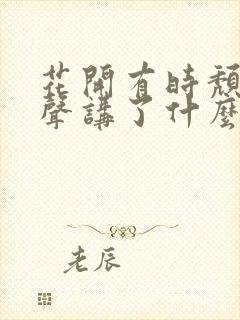 花開有時頹
聲講了什麼
老辰